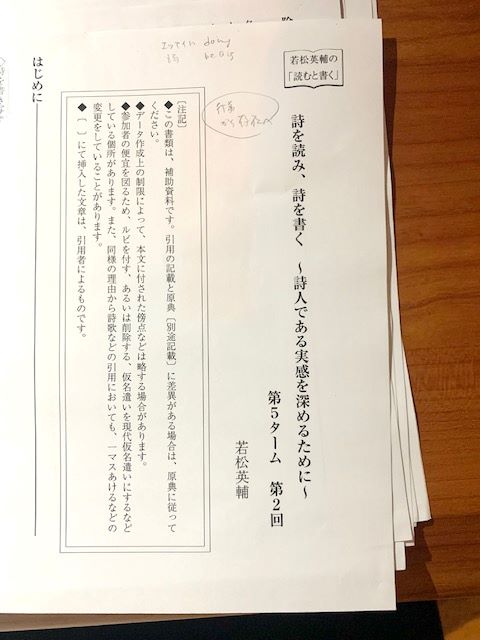 若松英輔の
「読むと書く」
詩を読み、詩を書く　～詩人である実感を深めるために～
第5ターム　第2回
若松英輔
行為
から存在へ
エッセイは doing
詩 being
〔注記〕
◆この書類は、補助資料です。引用の記載と原典〔別途記載〕に差異がある場合は、原典に従って
ください。
◆データ作成上の制限によって、本文に付された傍点などは略する場合があります。
◆参加者の便宜を図るため、ルビを付す、あるいは削除する、仮名遣いを現代仮名遣いにするなど
している個所があります。また、同様の理由から詩歌などの引用においても、一マスあけるなどの
変更をしていることがあります。
◆〔　〕にて挿入した文章は、引用者によるものです。
はじめに